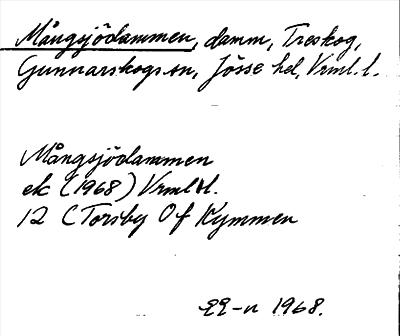 Mångsjödammen, damm, Treskog,
Gunnarskogs sn, Jösse hd, Vrml. l.
Mångsjödammen
ek (1968) Vrml l.
12 C Torsby Of Kymmen
1968.